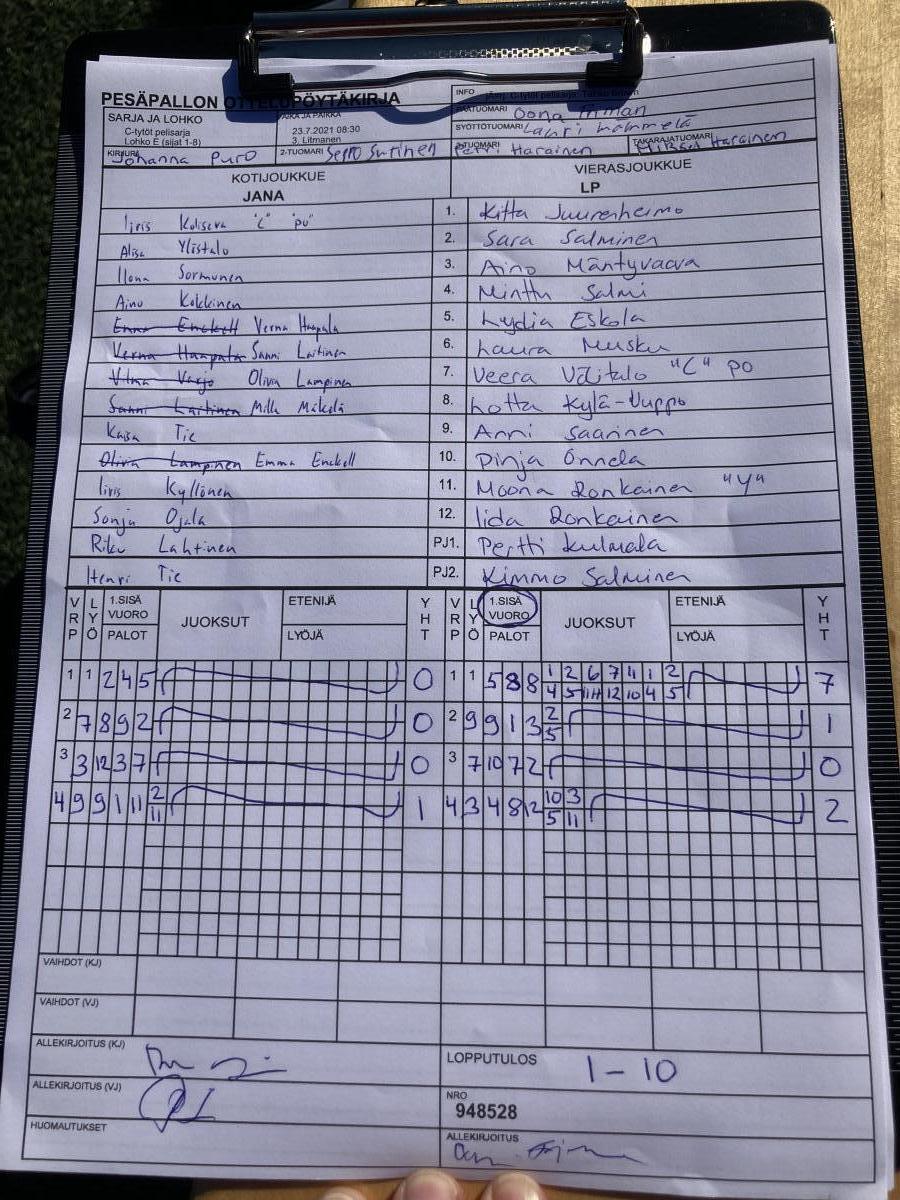 PESÄPALLON OTTELUPÖYTÄKIRJA
INFO
SARJA JA LOHKO
C-tytöt pelisarja
Lohko E (sijat 1-8)
AIKA JA PAIKKA
23.7.2021 08:30
3. Litmanen
PÄÄTUOMARI Oona
SYÖTTÖTUOMARI Lauri Hämmelä
KIRJURI Johanna Puro 2-TUOMARI Seppo Surinen Petri Harainen TAKARAJATUOMARI Harainen
KOTIJOUKKUE VIERASJOUKKUE
JANA LP
Iiris Koliseva "C" "PU" 1. Kitta Juurenheimo
Alisa Ylistalo 2. Sara Salminen
Ilona Sormunen 3. Aino Mäntyvaara
Aino Kokkinen 4. Minttu Salmi
Emma Enckell Verna Haapala 5. Lydia Eskola
Verna Haapala Sanni Laitinen 6. Laura Musku
Vilma Varjo Olivia Lampinen 7. Veera Välitalo "C" PO
Sanni Laitinen Milla Mäkelä 8. Lotta Kylä-Vuppo
Kaisa Tie 9. Anni Saarinen
Olivia Lampinen Emma Enckell 10. Pinja Onnela
Iiris Kyllönen 11. Moona Ronkainen "Y"
Sonja Ojala 12. Iida Ronkainen
Riku Lahtinen PJ1. Pertti Kulmala
Henri Tie PJ2. Kimmo Salminen
VRP LYÖ 1.SISÄ VUORO PALOT JUOKSUT ETENIJÄ LYÖJÄ YHT VRP LYÖ 1.SISÄ VUORO PALOT JUOKSUT ETENIJÄ LYÖJÄ YHT
1 1 2 4 5 0 1 1 5 8 8 1 2 6 7 11 1 2 7
4 5 11 12 10 4 5
2 7 8 9 2 0 2 9 9 1 3 2 1
5
3 3 12 3 7 0 3 7 10 7 2 0
4 9 9 1 11 2 1 4 3 4 8 12 10 3 2
11 5 11
VAIHDOT (KJ)
VAIHDOT (VJ)
ALLEKIRJOITUS (KJ)
LOPPUTULOS 1-10
ALLEKIRJOITUS (VJ)
NRO
948528
HUOMAUTUKSET
ALLEKIRJOITUS